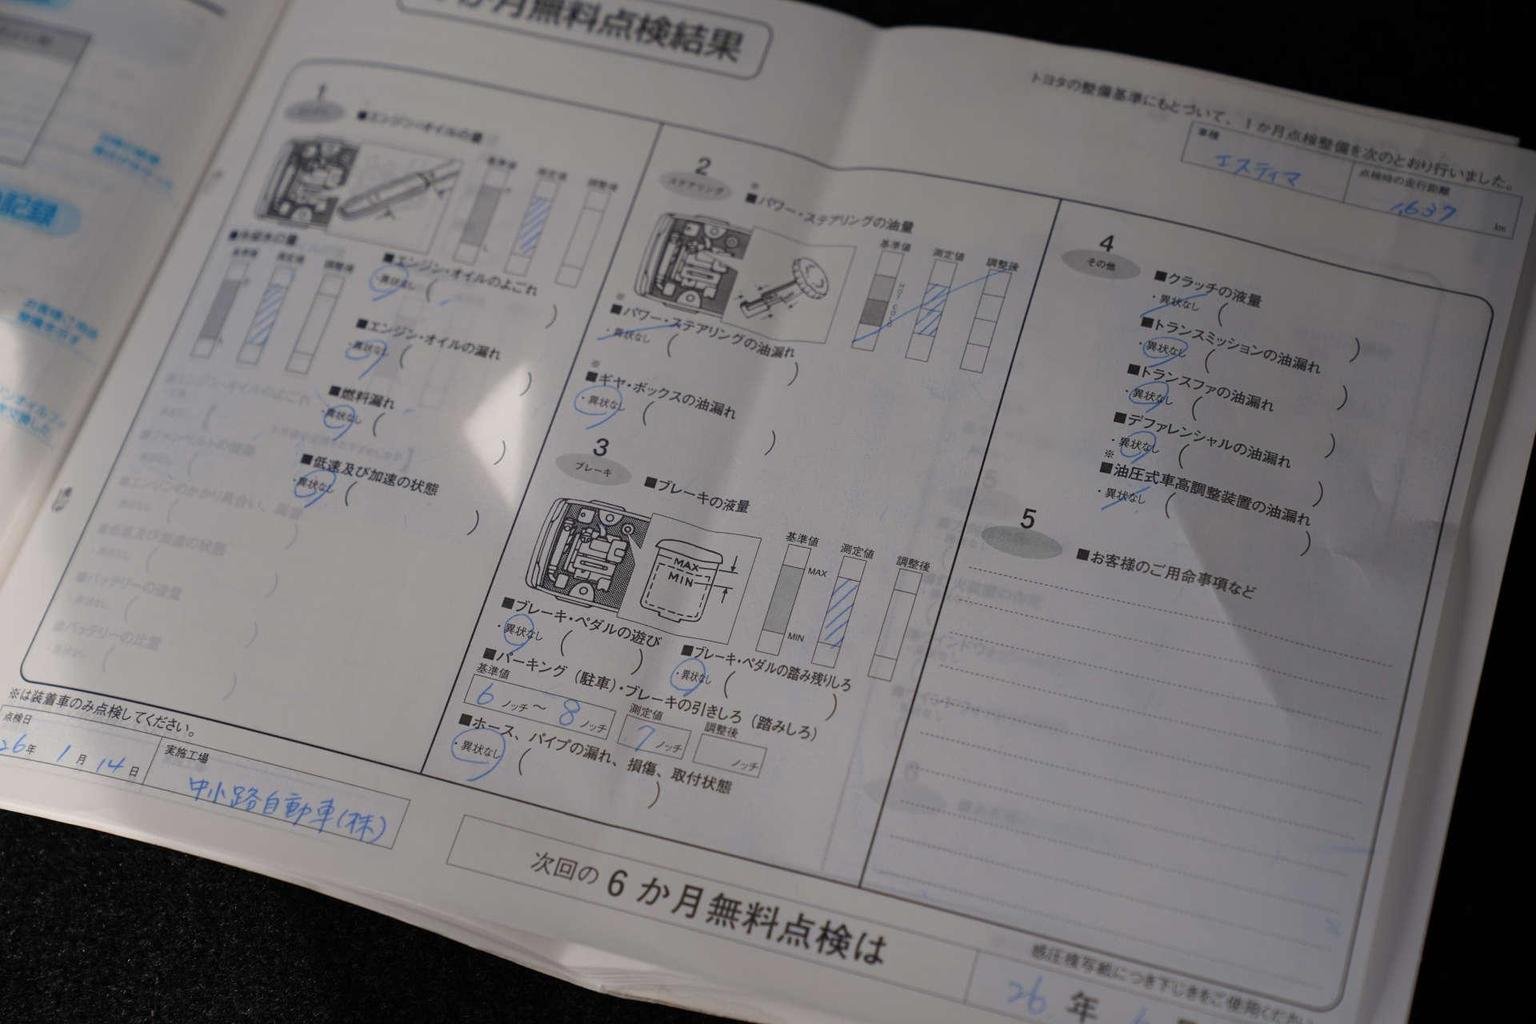 か月無料点検結果
トヨタの整備基準にもとづいて、1か月点検整備を次のとおり行いました。
車種
エスティマ
点検時の走行距離
1,637
km
1
■エンジン・オイルの量
基準値
測定値
調整後
■冷却水の量
基準値
測定値
調整後
■エンジン・オイルのよごれ
・異状なし ( )
■エンジン・オイルの漏れ
・異状なし ( )
■燃料漏れ
・異状なし ( )
■低速及び加速の状態
・異状なし ( )
2
ステアリング
※
■パワー・ステアリングの油量
基準値
測定値
調整後
※
■パワー・ステアリングの油漏れ
・異状なし ( )
※
■ギヤ・ボックスの油漏れ
・異状なし ( )
3
ブレーキ
■ブレーキの液量
MAX
MIN
基準値
MAX
MIN
測定値
調整後
■ブレーキ・ペダルの遊び
・異状なし ( )
■ブレーキ・ペダルの踏み残りしろ
・異状なし ( )
■パーキング(駐車)・ブレーキの引きしろ(踏みしろ)
基準値
6 ノッチ ~ 8 ノッチ
測定値
7 ノッチ
調整後
ノッチ
■ホース、パイプの漏れ、損傷、取付状態
・異状なし ( )
4
その他
■クラッチの液量
・異状なし ( )
■トランスミッションの油漏れ
・異状なし ( )
■トランスファの油漏れ
・異状なし ( )
■デファレンシャルの油漏れ
・異状なし ( )
※
■油圧式車高調整装置の油漏れ
・異状なし ( )
5
■お客様のご用命事項など
※は装着車のみ点検してください。
点検日
26年 1月 14日
実施工場
中小路自動車(株)
次回の6か月無料点検は
感圧複写紙につき下じきをご使用ください
26 年
記録